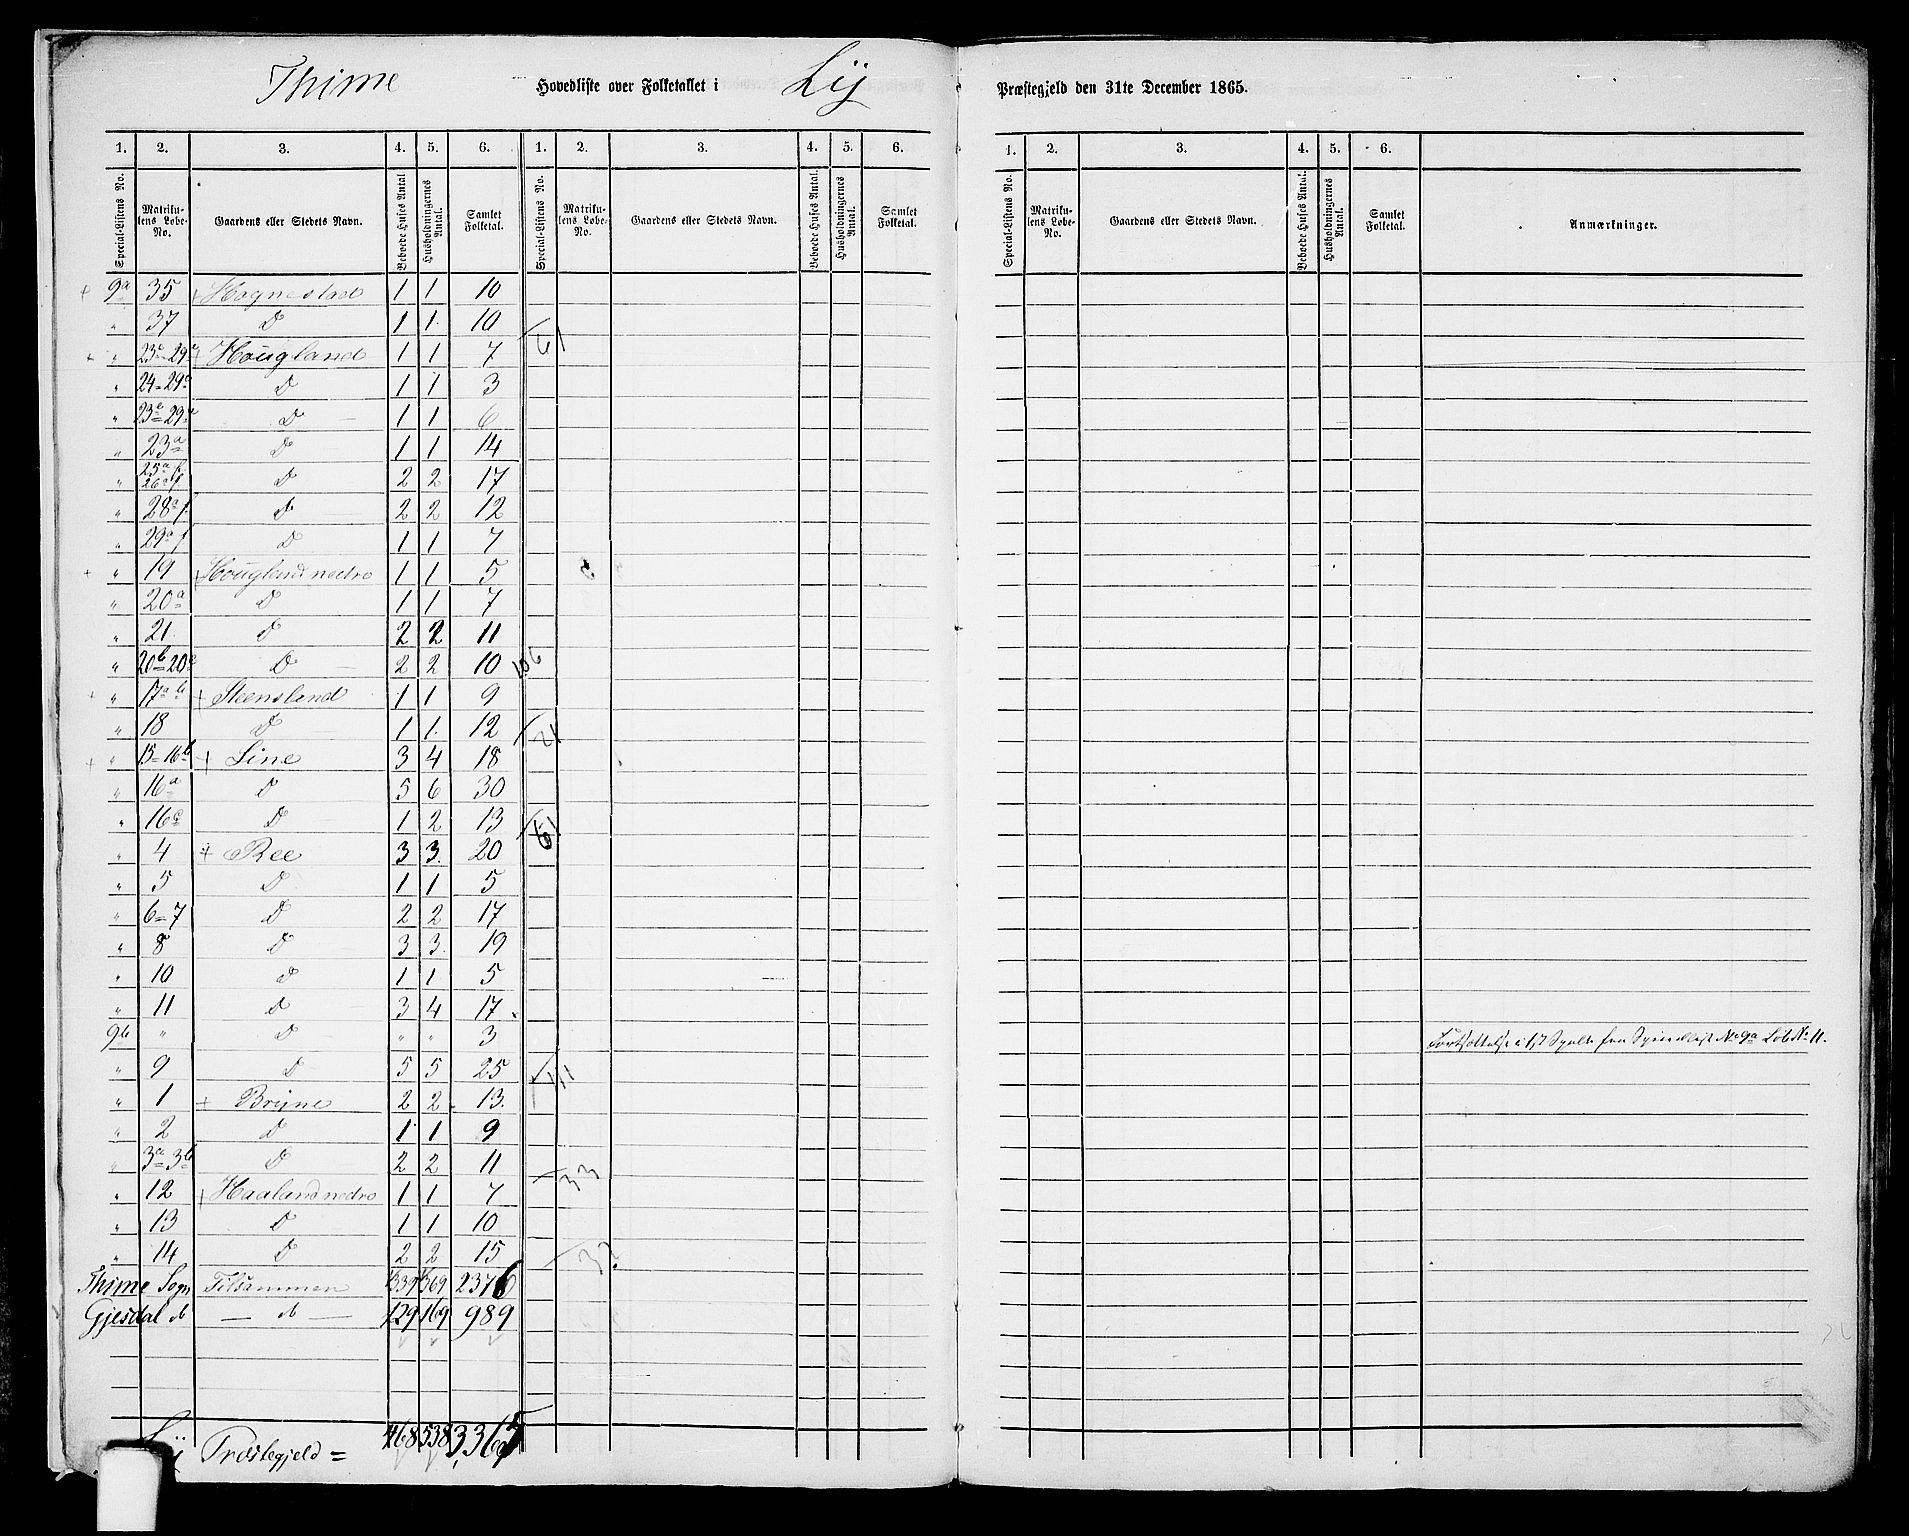 Thime Hovedliste over Folketallet i Lÿ Præstegjeld den 31te December 1865.
1. 2. 3. 4. 5. 6. 1. 2. 3. 4. 5. 6. 1. 2. 3. 4. 5. 6.
Special-Listens No. Matrikulens Løbe-No. Gaardens eller Stedets Navn. Beboede Huses Antal. Husholdningernes Antal. Samlet Folketal. Special-Listens No. Matrikulens Løbe-No. Gaardens eller Stedets Navn. Beboede Huses Antal. Husholdningernes Antal. Samlet Folketal. Special-Listens No. Matrikulens Løbe-No. Gaardens eller Stedets Navn. Beboede Huses Antal. Husholdningernes Antal. Samlet Folketal. Anmærkninger.
+ 9a 35 + Hognestad 1 1 10
" 37 D 1 1 10
61
+ " 23c 29c + Hougland 1 1 7
" 24 = 29d D 1 1 3
" 23e 29e D 1 1 6
" 23a D 1 1 14
" 25a f. 26a f. D 2 2 17
" 28a f. D 2 2 12
" 29a f D 1 1 7
+ " 19 + Hougland nedro 1 1 5
" 20a D 1 1 7
" 21. D 2 2 11
" 20b = 20c D 2 2 10 106
+ " 17a b + Steensland 1 1 9
" 18 D 1 1. 12
21
+ " 15 = 16b + Line 3 4 18
" 16a D 5 6 30
" 16c D 1 2 13
61
" 4 + Ree 3 3. 20
" 5 D 1 1 5
" 6 = 7 D 2 2 17
" 8 D 3 3. 19
" 10 D 1 1. 5
" 11 D 3 4 17
9b " D " " 3 Fortsættelse No 9a Løb No 11.
" 9 D 5 5 25
111
" 1 + Brÿne 2 2 13.
" 2 D 1 1 9
" 3a 3b D 2 2 11
33
" 12 + Haaland nedro 1 1 7
" 13 D 1 1 10
" 14 D 2 2 15
32
Thime Sogn Tilsammen 339 369 2376
Gjesdal D — D — 129 169 989
Lÿ Præstegjeld = 468 538 3,365